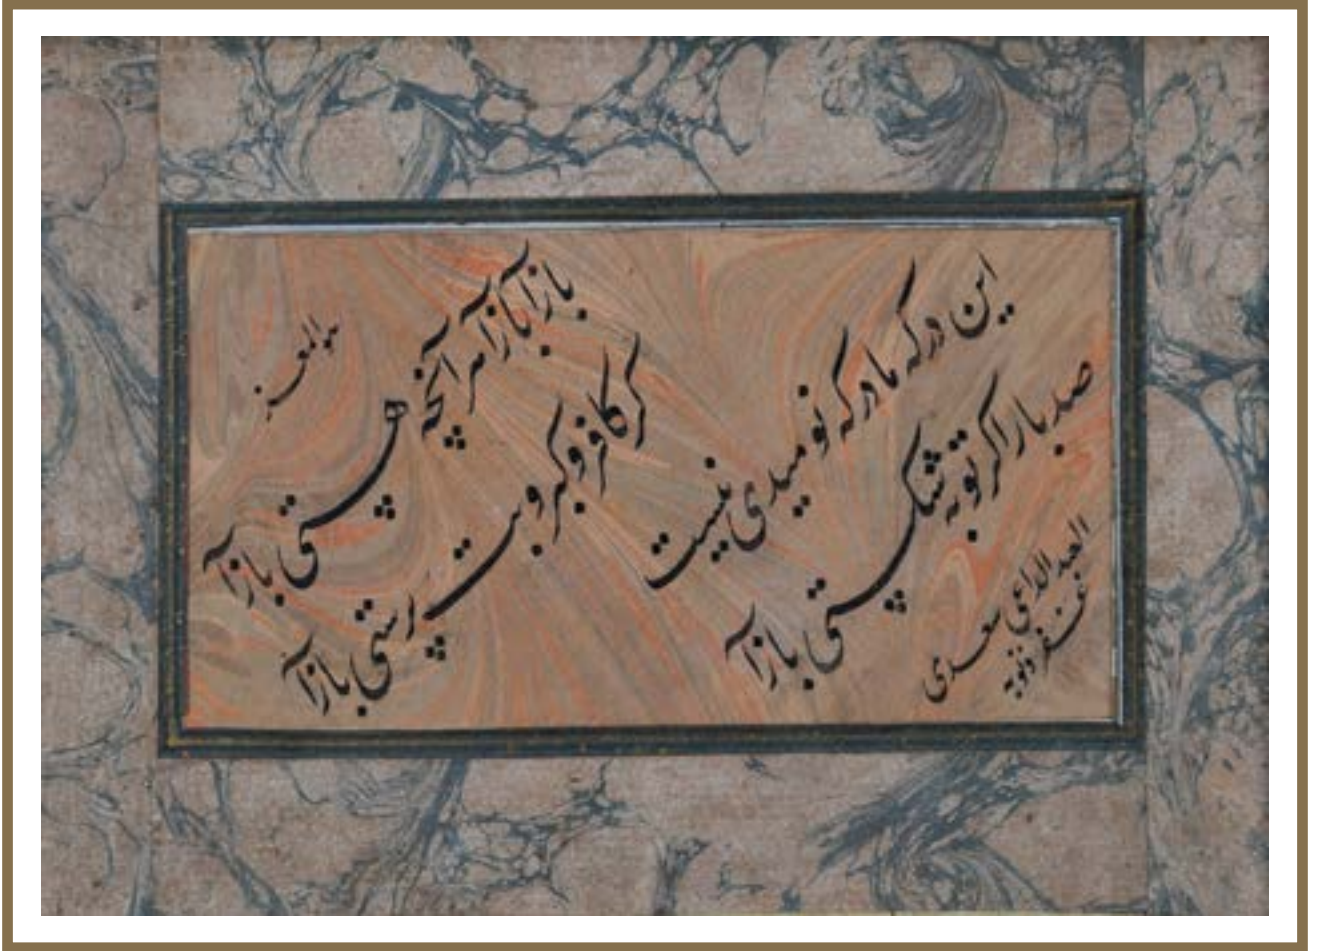 هوالمعز
بازآ بازآ هر آنچه هستی بازآ
کر کافر و کبر و بت پرستی بازآ
این درکه ما درکه نومیدی نیست
صد بار اکر توبه شکستی بازآ
العبد الداعی سعدی
غفر ذنوبه